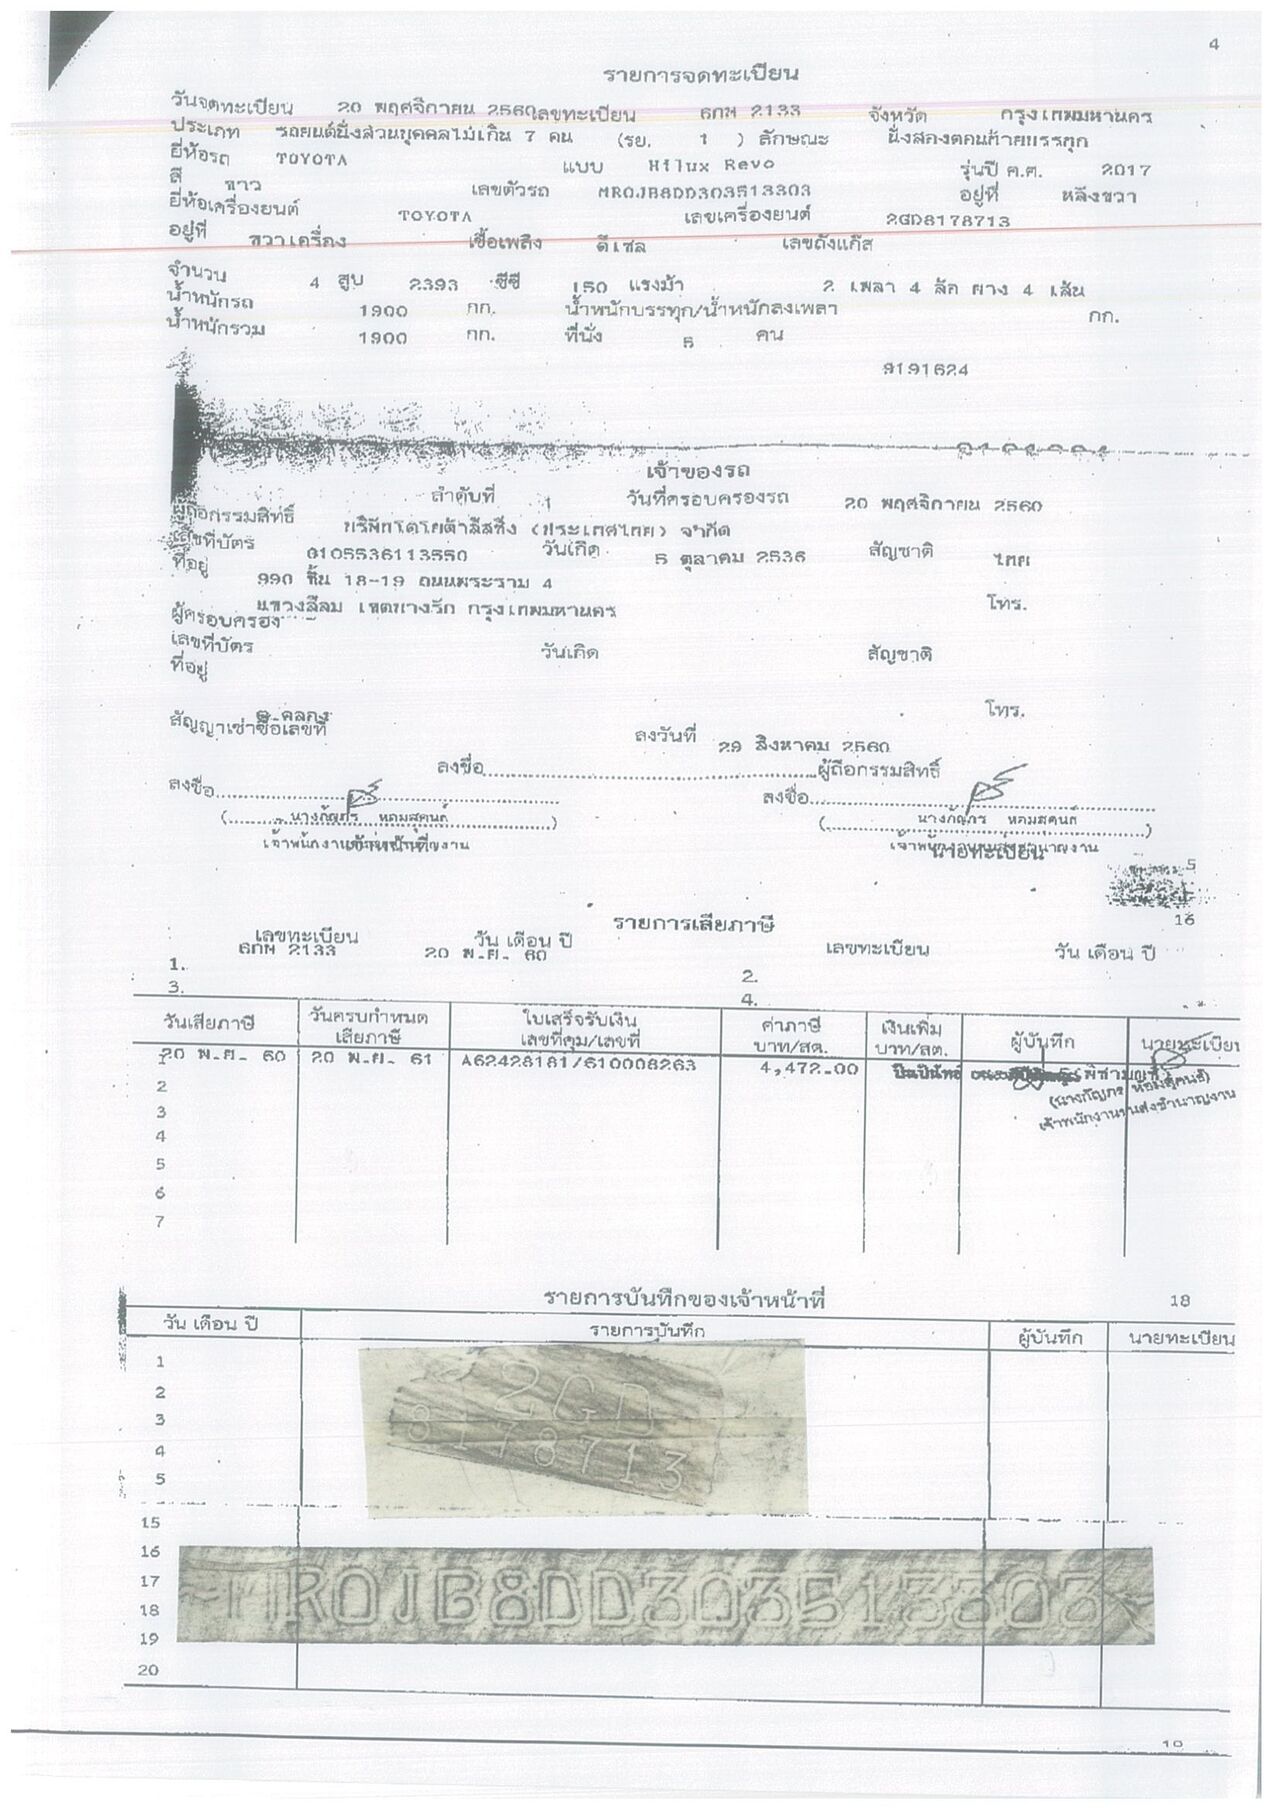 4
รายการจดทะเบียน
วันจดทะเบียน 20 พฤศจิกายน 2560 เลขทะเบียน 6กฬ 2133 จังหวัด กรุงเทพมหานคร
ประเภท รถยนต์นั่งส่วนบุคคลไม่เกิน 7 คน (รย. 1 ) ลักษณะ นั่งสองตอนท้ายบรรทุก
ยี่ห้อรถ TOYOTA แบบ Hilux Revo รุ่นปี ค.ศ. 2017
สี ขาว เลขตัวรถ MR0JB8DD303513303 อยู่ที่ หลังขวา
ยี่ห้อเครื่องยนต์ TOYOTA เลขเครื่องยนต์ 2GD8178713
อยู่ที่ ขวาเครื่อง เชื้อเพลิง ดีเซล เลขถังแก๊ส
จำนวน 4 สูบ 2393 ซีซี 150 แรงม้า 2 เพลา 4 ล้อ ยาง 4 เส้น
น้ำหนักรถ 1900 กก. น้ำหนักบรรทุก/น้ำหนักลงเพลา กก.
น้ำหนักรวม 1900 กก. ที่นั่ง 5 คน
9191624
เจ้าของรถ
ลำดับที่ 1 วันที่ครอบครองรถ 20 พฤศจิกายน 2560
ผู้ถือกรรมสิทธิ์ บริษัทโตโยต้าลีสซิ่ง (ประเทศไทย) จำกัด
เลขที่บัตร 0105536113550 วันเกิด 5 ตุลาคม 2536 สัญชาติ ไทย
ที่อยู่ 990 ชั้น 18-19 ถนนพระราม 4
แขวงสีลม เขตบางรัก กรุงเทพมหานคร โทร.
ผู้ครอบครอง
เลขที่บัตร วันเกิด สัญชาติ
ที่อยู่
โทร.
สัญญาเช่าซื้อเลขที่ ลงวันที่ 29 สิงหาคม 2560
ลงชื่อ ผู้ถือกรรมสิทธิ์
ลงชื่อ ลงชื่อ
(นางกัญภร หอมสุคนธ์) (นางกัญภร หอมสุคนธ์)
เจ้าหน้าที่ นายทะเบียน
5
16
รายการเสียภาษี
เลขทะเบียน วัน เดือน ปี เลขทะเบียน วัน เดือน ปี
1. 6กฬ 2133 20 พ.ย. 60 2.
3. 4.
วันเสียภาษี วันครบกำหนดเสียภาษี ใบเสร็จรับเงิน เลขที่คุม/เลขที่ ค่าภาษี บาท/สต. เงินเพิ่ม บาท/สต. ผู้บันทึก นายทะเบียน
1 20 พ.ย. 60 20 พ.ย. 61 A62428181/610008263 4,472.00
(นางกัญภร หอมสุคนธ์)
2 เจ้าพนักงานขนส่งชำนาญงาน
3
4
5
6
7
รายการบันทึกของเจ้าหน้าที่ 18
วัน เดือน ปี รายการบันทึก ผู้บันทึก นายทะเบียน
1
2 2GD
3 8178713
4
5
15
16
17 MR0JB8DD303513303
18
19
20
19